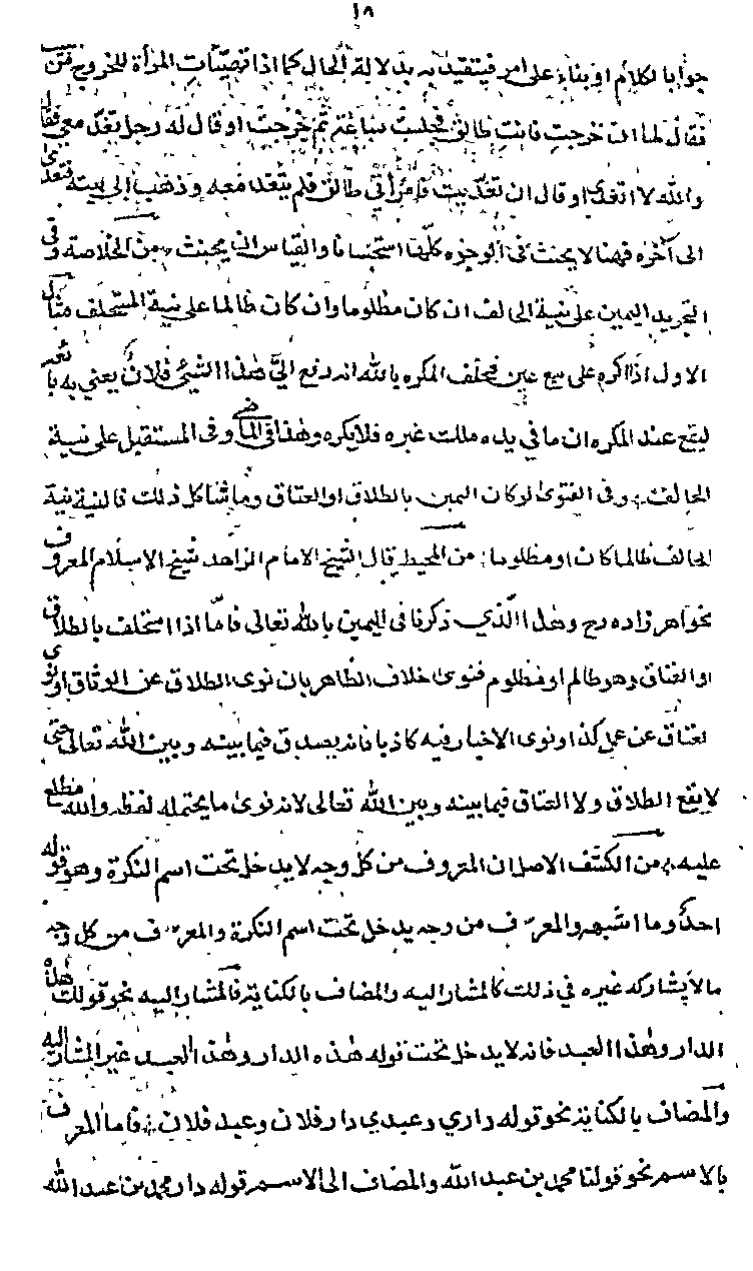 ١٨
جوابا لكلام او بناء على امر فيتقيد به بدلالة الحال كما اذا تهيأت المرأة للخروج
فقال لها ان خرجت فانت طالق فجلست ساعة ثم خرجت او قال له رجل تغد معي فقال
والله لا اتغدى او قال ان تغديت فامرأتي طالق فلم يتغد معه وذهب الى بيته فتغدى
الى آخره فهنا لا يحنث في الوجوه كلها استحسانا والقياس ان يحنث من الخلاصة وفي
التجريد اليمين على نية الحالف ان كان مظلوما وان كان ظالما على نية المستحلف مثال
الاول اذا اكره على بيع عين فحلف المكره بالله انه دفع الي هذا الشيء فلان يعني به بائعه
ليقع عند المكره ان ما في يده ملك غيره فلا يكره وهذا في الماضي وفي المستقبل على نية
الحالف وفي الفتوى لو كان اليمين بالطلاق او العتاق وما شاكل ذلك فالنية نية
الحالف ظالما كان او مظلوما من المحيط قال الشيخ الامام الزاهد شيخ الاسلام المعروف
بخواهر زاده رح وهذا الذي ذكرنا في اليمين بالله تعالى فاما اذا استحلف بالطلاق
او العتاق وهو ظالم او مظلوم فنوى خلاف الظاهر بان نوى الطلاق عن الوثاق او نوى
لعتاق عن عمل كذا او نوى الاخبار فيه كاذبا فانه يصدق فيما بينه وبين الله تعالى حتى
لا يقع الطلاق ولا العتاق فيما بينه وبين الله تعالى لانه نوى ما يحتمله لفظه والله مطلع
عليه من الكشف الاصل ان المعروف من كل وجه لا يدخل تحت اسم النكرة وهو قوله
احد وما اشبهه والمعرف من وجه يدخل تحت اسم النكرة والمعرف من كل وجه
ما لا يشاركه غيره في ذلك كالمشار اليه والمضاف بالكناية فالمشار اليه نحو قولك هذه
الدار وهذا العبد فانه لا يدخل تحت قوله هذه الدار وهذا العبد غير المشار اليه
والمضاف بالكناية نحو قوله داري وعبدي دار فلان وعبد فلان فاما المعرف
بالاسم نحو قولنا محمد بن عبد الله والمضاف الى الاسم قوله دار محمد بن عبد الله